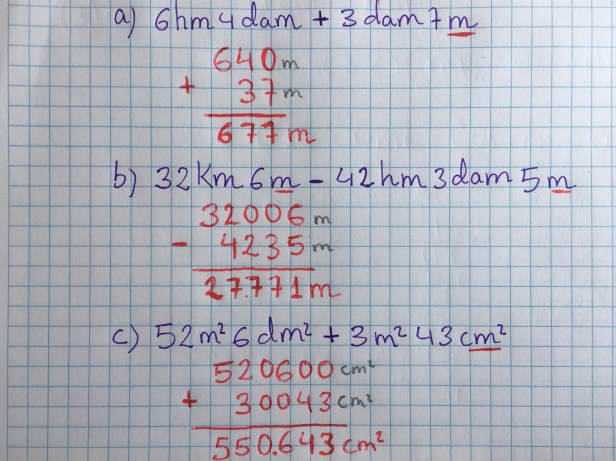 a) 6hm 4 dam + 3 dam 7 m
640 m
+ 37 m
677 m
b) 32 Km 6 m - 42 hm 3 dam 5 m
32006 m
- 4235 m
27.771 m
c) 52 m² 6 dm² + 3 m² 43 cm²
520600 cm²
+ 30043 cm²
550.643 cm²